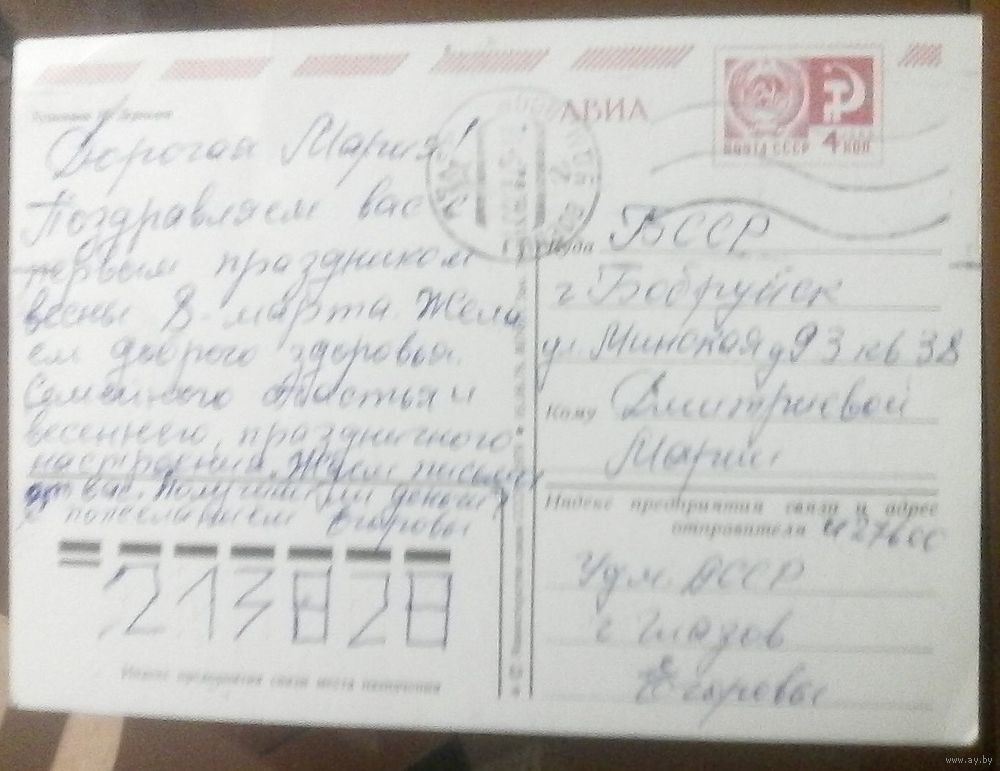 АВИА
ПОЧТА СССР 4 КОП
Дорогая Мария!
Поздравляем вас с
первым праздником
весны 8 марта. Жела
ем доброго здоровья.
Семейного счастья и
весеннего, праздничного
настроения. Ждем письма
от вас. Получили ли деньги?
С поцелуем Егоровы
213828
Индекс предприятия связи места назначения
Куда БССР
г Бобруйск
ул. Минская д 93 кв 38
Кому Дмитриевой
Марии
Индекс предприятия связи и адрес
отправителя 427600
Удм. АССР
г Глазов
Егоровы
www.ay.by